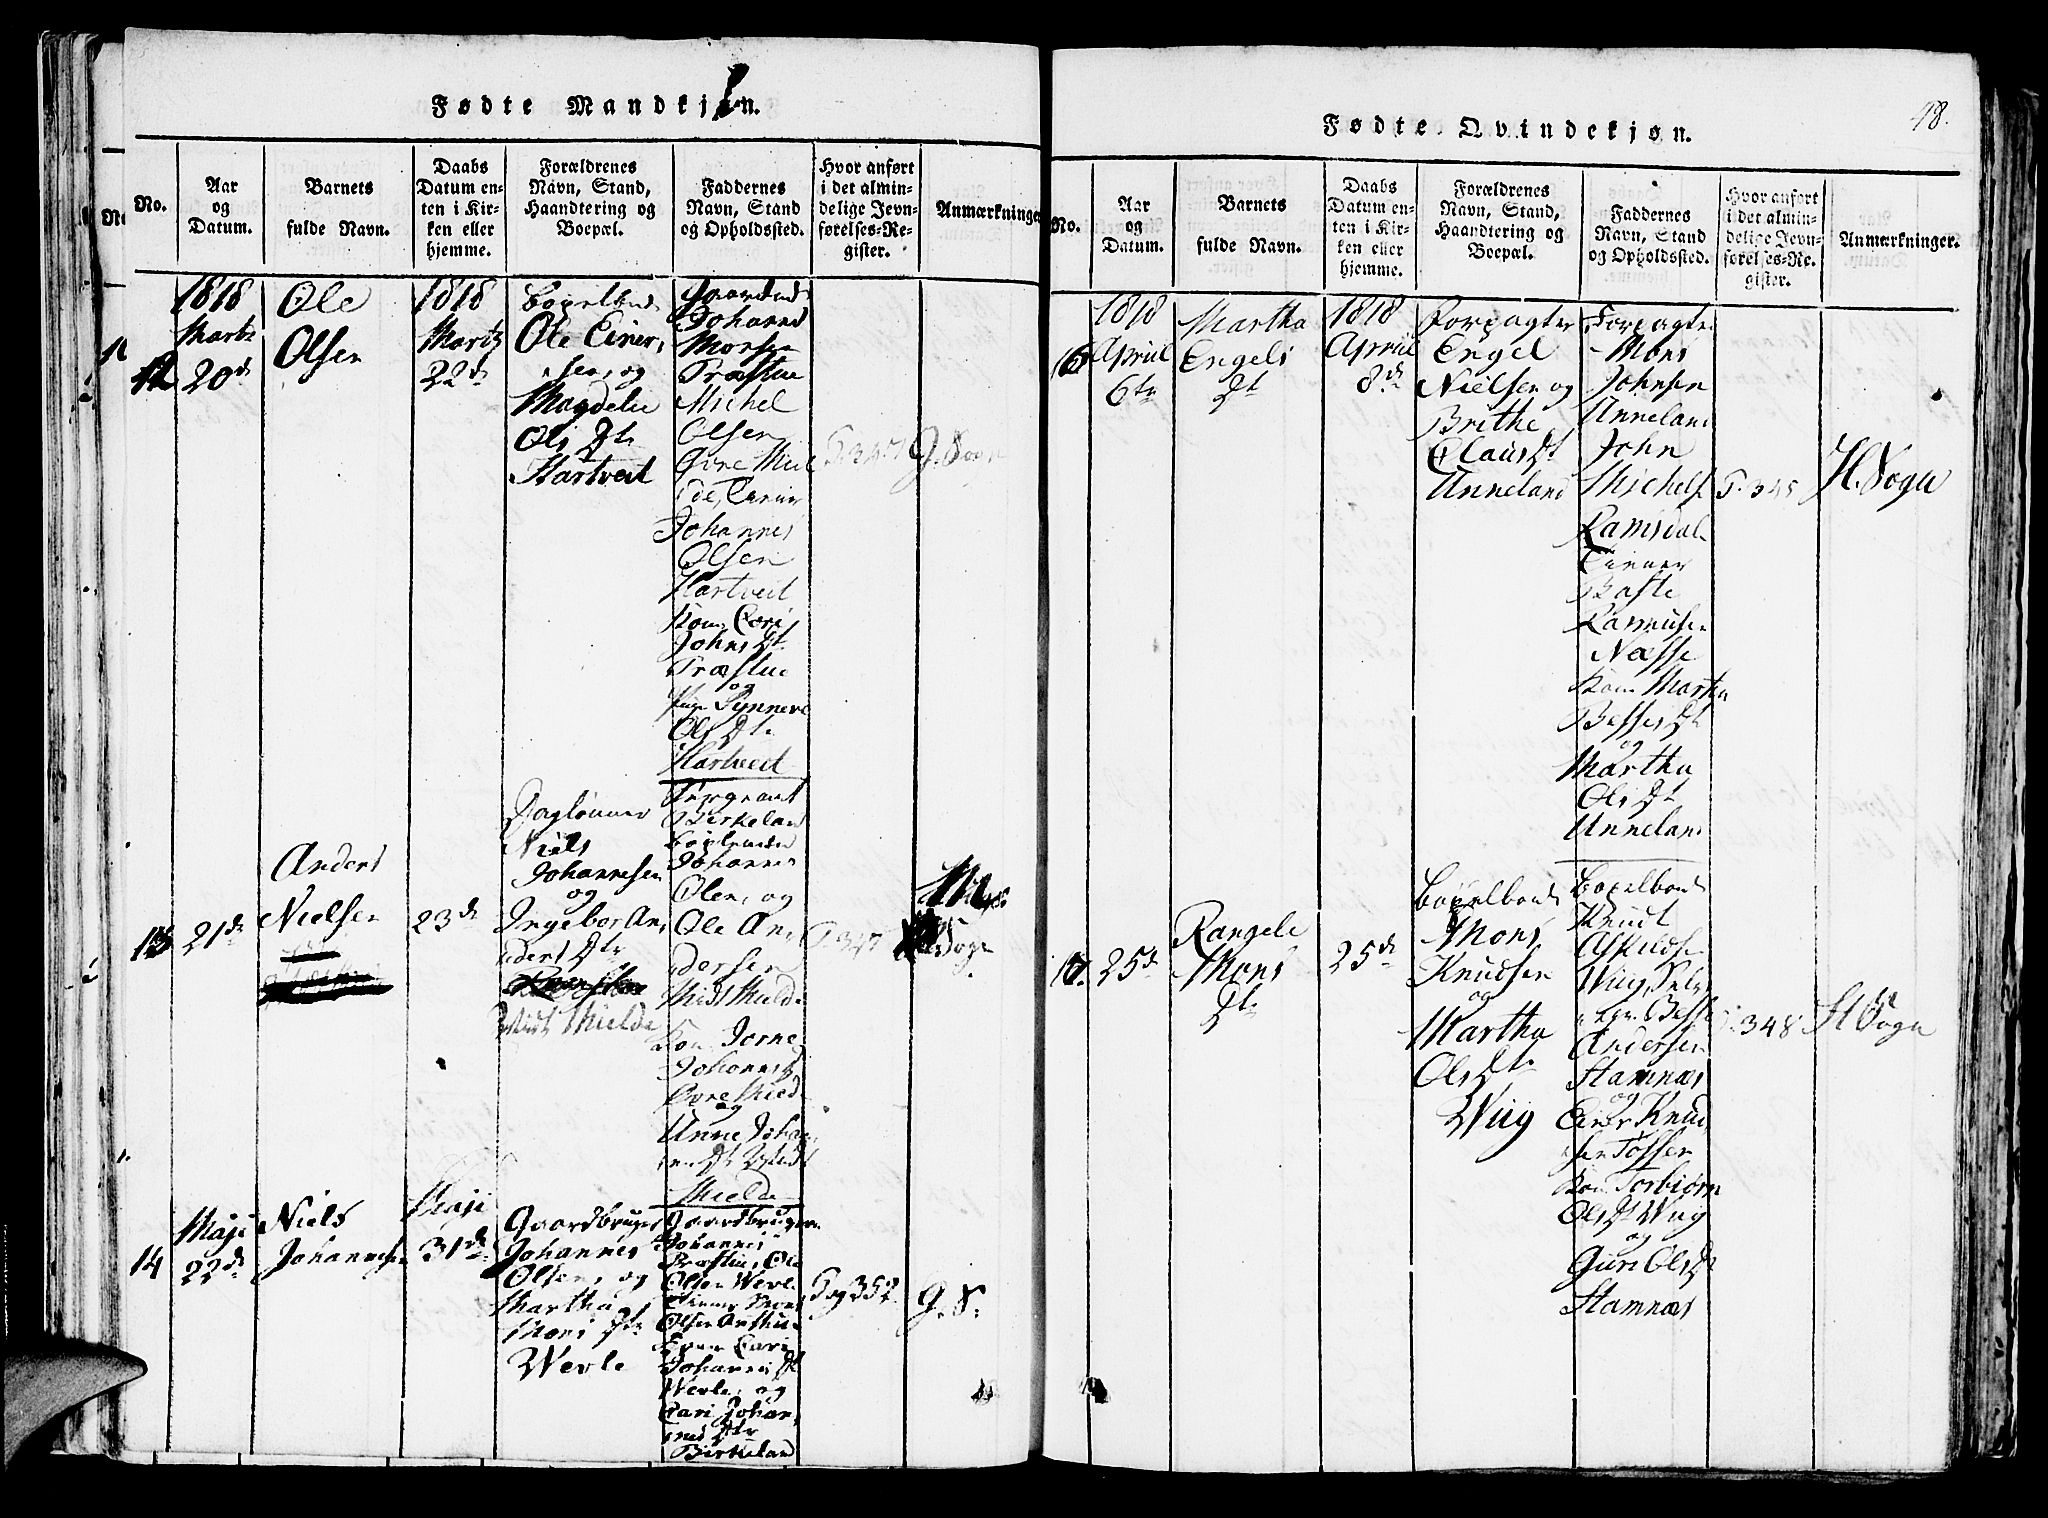 Fødte Mandkjøn.
No.
Aar
og
Datum.
Barnets
fulde Navn.
Daabs
Datum en-
ten i Kir-
ken eller
hjemme.
Forældrenes
Navn, Stand,
Haandtering og
Boepæl.
Faddernes
Navn, Stand
og Opholdssted.
Hvor anført
i det almin-
delige Jevn-
førelses-Re-
gister.
Anmærkninger
12
1818
Martz
20de
Ole
Olsen
1818
Martz
22de
Ole Einer,
sen, og
Magdele
Ols Dtr
Hartveit
Johannes
Monsen
Træstue
Michel
Olsen
Øvre Miel
de, Einer
Johannes
Olsen
Hartveit
Kone Cari
Johns Dt.
Træstue
og
Pige Synneve
Ols Dtr
Hartveit
P. 347
G. Sogn
13
21de
Anders
Nielsen
23de
Daglønner
Niels
Johannesen
og
Ingebor An,
ders Dtr
Midt Mielde
Birkeland
Johannes
Olen, og
Ole An,
dersen
Midt Mielde
Kone
Johannes
Øvre Mield
og
Anne Johan,
nes Dt Midt
Mielde
P. 347
Sogn
14
Maji
22de
Niels
Johannesen
Maji
31de
Gaardbruger
Johannes
Olsen, og
Martha
Mons Dtr
Wevle
Gaardbrugere
Johannes
Træstue, Ole
Olsen Wevle
Olsen
Cari
Johannes Dt
Wevle, og
Cari Johan,
nes Dtr
Birkeland
Pag 352
G. S.
Fødte Qvindekjøn.
48.
No.
Aar
og
Datum.
Barnets
fulde Navn.
Daabs
Datum en-
ten i Kir-
ken eller
hjemme.
Forældrenes
Navn, Stand,
Haandtering og
Boepæl.
Faddernes
Navn, Stand
og Opholdssted.
Hvor anført
i det almin-
delige Jevn-
førelses-Re-
gister.
Anmærkninger.
16
1818
April
6te
Martha
Engels
Dt
1818
April
8de
Forpagter
Engel
Nielsen og
Brithe
Claus Dt
Unneland
Forpagter
Mons
Johnsen
Unneland
John
Michels
Ramsdal
Einer
Baste
Rasmusen
Næsse
Kone Martha
Besses Dt
og
Martha
Ols Dt
Unneland
P. 345
H. Sogn
17.
25de
Rangele
Mons
Dtr
25de
Mons
Knudsen
og
Martha
Ols Dtr
Wiig
Knudt
Wiig,
Besse
Andersen
Stamnæs
og
Einer Knud
sen Tøssen
Kone Torbiørn
Ols Dt Wiig
og
Guri Ols Dt
Stamnæs
P. 348
H Sogn